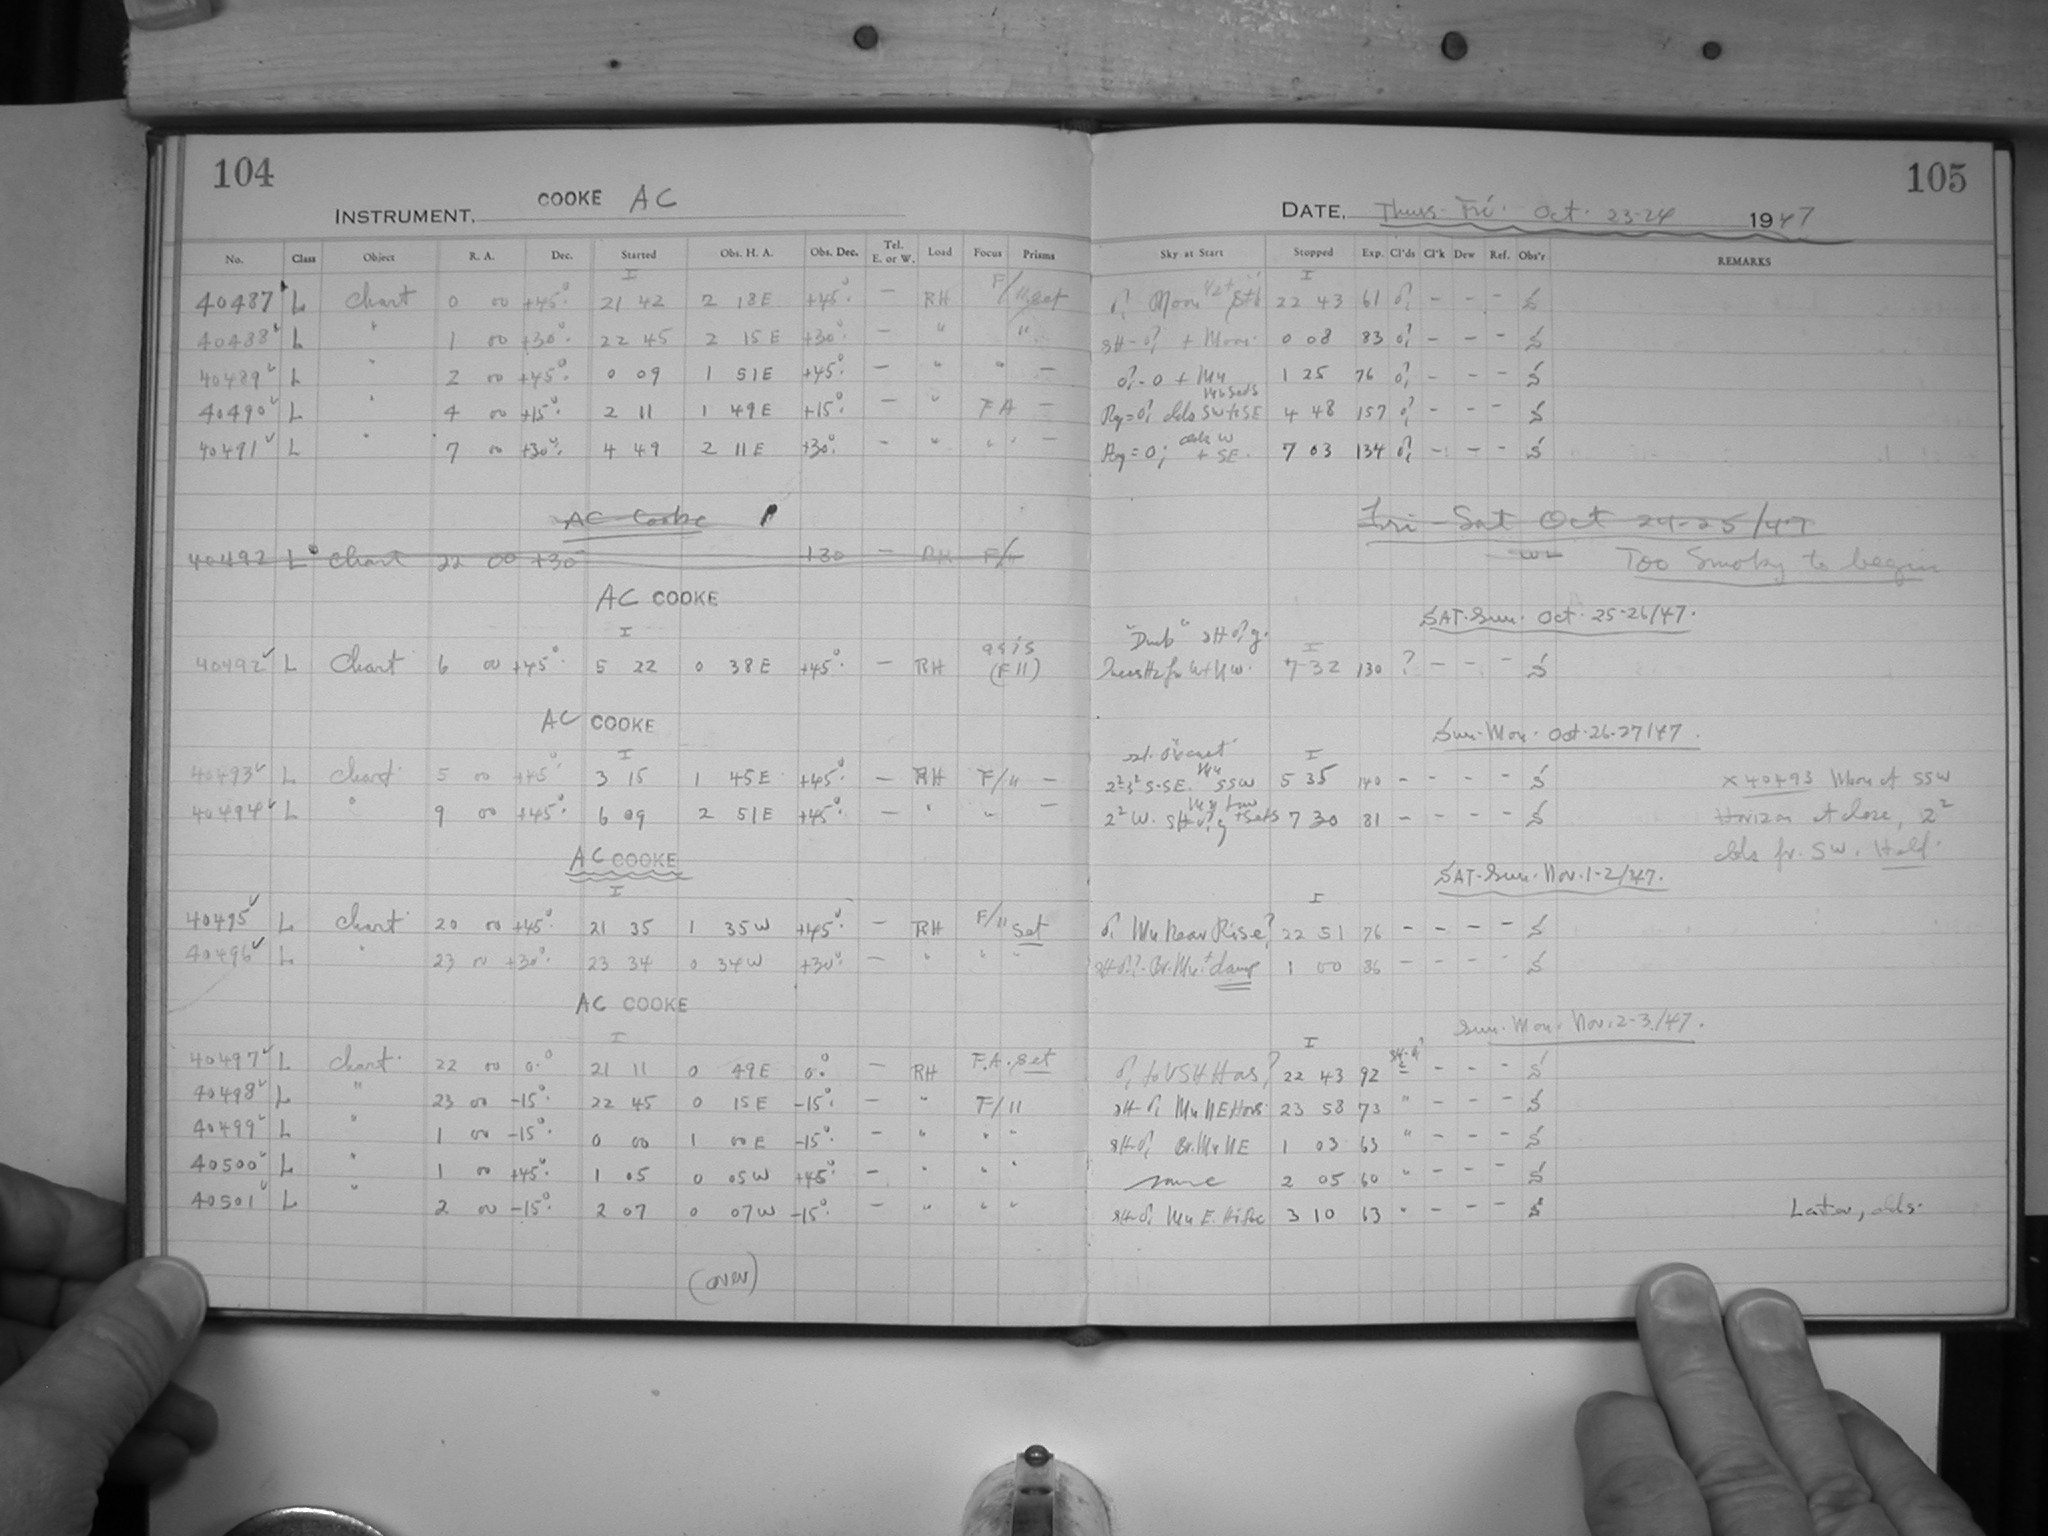 104
105
INSTRUMENT, COOKE AC
DATE, Thurs-Fri. Oct. 23-24 1947
No. Class Object R. A. Dec. Started Obs. H. A. Obs. Dec. Tel. E. or W. Load Focus Prisms Sky at Start Stopped Exp. Cl'ds Cl'k Dew Ref. Obs'r REMARKS
I I
40487 L Chart 0 00 +45° 21 42 2 18E +45° - RH F/11 set Moon 22 43 61 - - -
40488 L " 1 00 +30° 22 45 2 15E +30° - " " SH + Moon 0 08 83 - - -
40489 L " 2 00 +45° 0 09 1 51E +45° - " " - 1 25 76 - - -
40490 L " 4 00 +15° 2 11 1 49E +15° - " FA - clds SW + SE 4 48 157 - - -
40491 L " 7 00 +30° 4 49 2 11E +30° - " " " - + SE. 7 03 134 - - -
AC Cooke
Fri-Sat Oct 24-25/47
40492 L Chart 22 00 +30 +30 - RH F/11
Too Smoky to begin
AC COOKE
SAT-Sun. Oct. 25-26/47.
I I
40492 L Chart 6 00 +45° 5 22 0 38E +45° - RH (F11) 7 32 130 ? - - -
AC COOKE
Sun-Mon. Oct-26-27/47.
I I
40493 L Chart 5 00 +45° 3 15 1 45E +45° - RH F/11 - S-SE. SSW 5 35 140 - - - - x 40493 Moon at SSW
40494 L " 9 00 +45° 6 09 2 51E +45° - " " - 2² W. 7 30 81 - - - - Horizon at close, 2²
clds fr. SW. Half.
AC COOKE
SAT-Sun. Nov. 1-2/47.
I I
40495 L Chart 20 00 +45° 21 35 1 35W +45° - RH F/11 set near Rise? 22 51 76 - - - -
40496 L " 23 00 +30° 23 34 0 34W +30° - " " " + damp 1 00 86 - - - -
AC COOKE
Sun-Mon. Nov. 2-3/47.
I I
40497 L Chart 22 00 0° 21 11 0 49E 0° - RH F.A. set 22 43 92 - - -
40498 L " 23 00 -15° 22 45 0 15E -15° - " F/11 23 58 73 " - - -
40499 L " 1 00 -15° 0 00 1 00E -15° - " " " NE 1 03 63 " - - -
40500 L " 1 00 +45° 1 05 0 05W +45° - " " " same 2 05 60 " - - -
40501 L " 2 00 -15° 2 07 0 07W -15° - " " " 3 10 63 " - - - Later, clds.
(over)